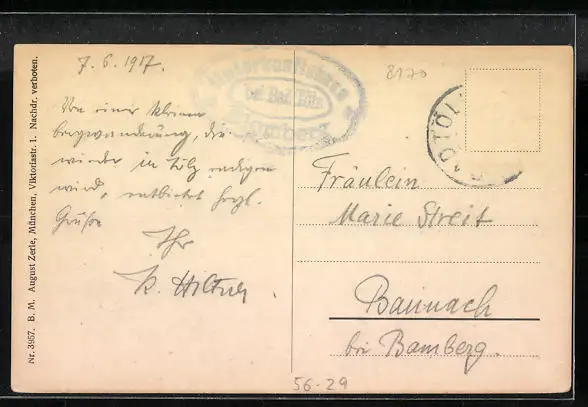 7. 6. 1917.
8170
Von einer kleinen
Bergwanderung, die
wieder in Tölz endigen
wird, entbietet herzl.
Grüße
Ihr
K. Hiltner
bei Bad Tölz
BAD TÖLZ
Fräulein
Marie Streit
Baunach
bei Bamberg.
56-29
Nr. 3957. B. M. August Zerle, München, Viktoriastr. 1. Nachdr. verboten.